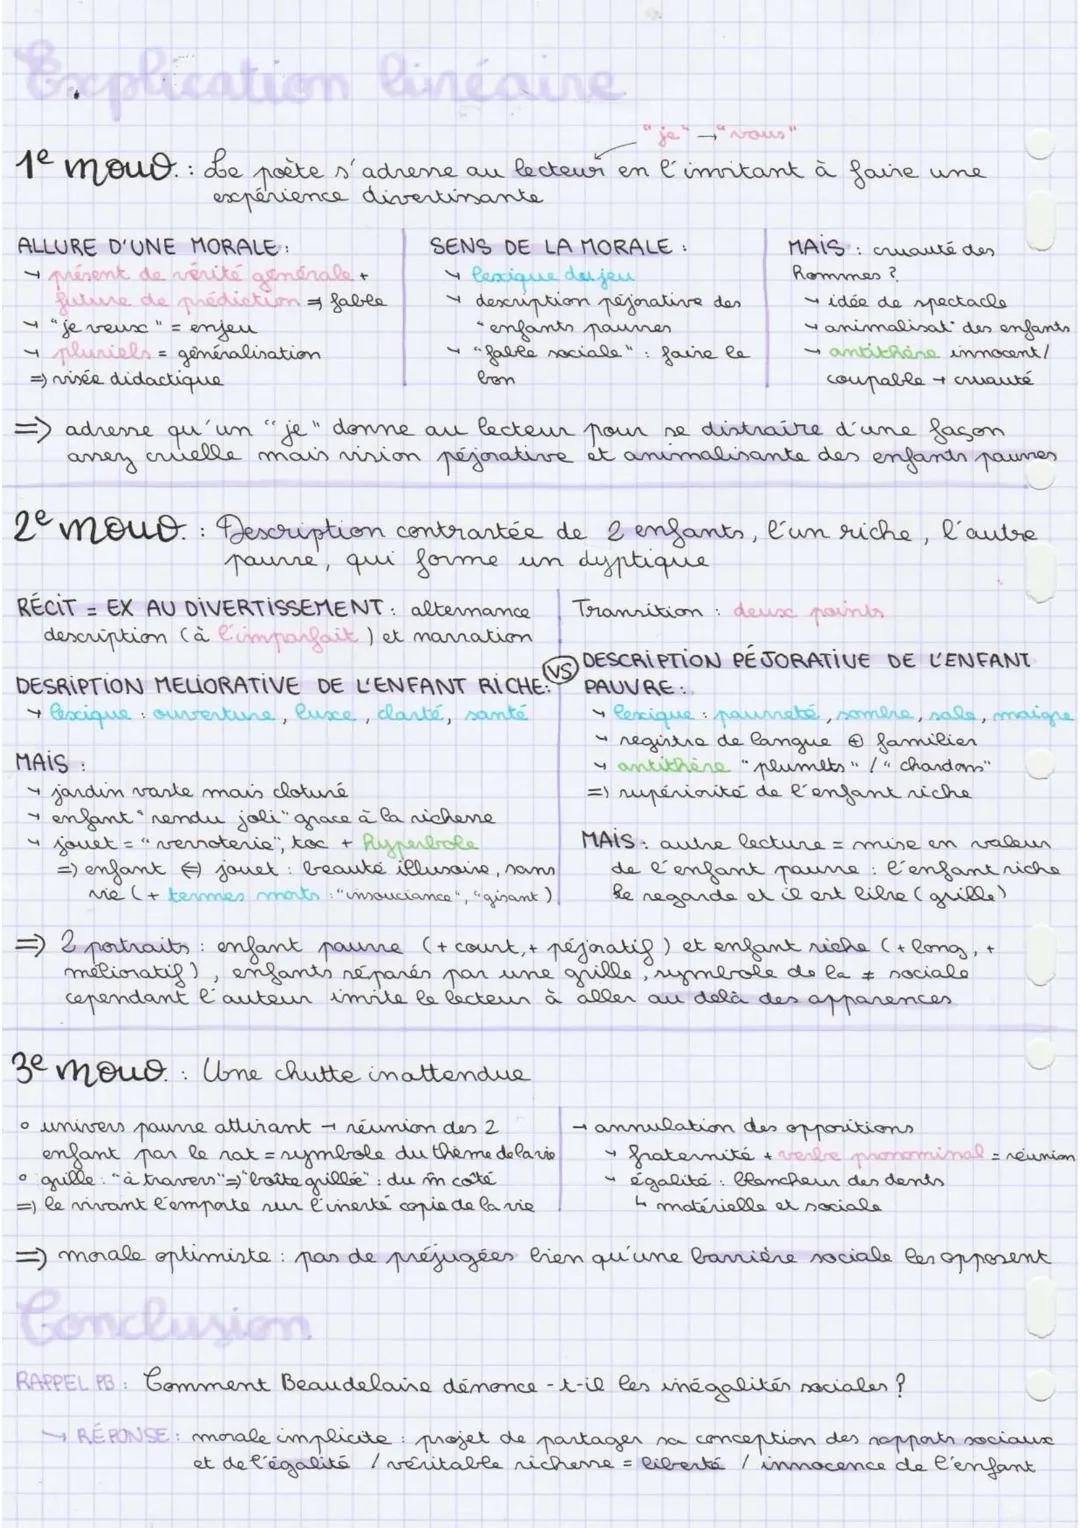 Explication linéaire
"je" → "vous"
1e mouv. : Le poète s'adresse au lecteur en l'invitant à faire une
expérience divertissante
ALLURE D'UNE MORALE :
→ présent de vérité générale +
future de prédiction => fable
→ "je veux" = enjeu
→ pluriels = généralisation
=> visée didactique
SENS DE LA MORALE :
→ lexique du jeu
→ description péjorative des
"enfants pauvres
→ "fable sociale" : faire le
bon
MAIS : cruauté des
hommes ?
→ idée de spectacle
→ animalisat° des enfants
→ antithèse innocent/
coupable → cruauté
=> adresse qu'un "je" donne au lecteur pour se distraire d'une façon
assez cruelle mais vision péjorative et animalisante des enfants pauvres
2e mouv. : Description contrastée de 2 enfants, l'un riche, l'autre
pauvre, qui forme un dyptique
RÉCIT = EX AU DIVERTISSEMENT : alternance
description (à l'imparfait) et narration
Transition : deux points
DESRIPTION MELIORATIVE DE L'ENFANT RICHE :
→ lexique : ouverture, luxe, clarté, santé
MAIS :
→ jardin vaste mais cloturé
→ enfant "rendu joli" grace à la richesse
→ jouet = "verroterie", toc + hyperbole
=> enfant <=> jouet : beauté illusoire, sans
vie (+ termes morts : "insouciance", "gisant")
VS
DESCRIPTION PÉJORATIVE DE L'ENFANT
PAUVRE :
→ lexique : pauvreté, sombre, sale, maigre
→ registre de langue ⊕ familier
→ antithèse "plumets" / "chardons"
=> supériorité de l'enfant riche
MAIS : autre lecture = mise en valeur
de l'enfant pauvre : l'enfant riche
le regarde et il est libre (grille)
=> 2 portraits : enfant pauvre (+ court, + péjoratif) et enfant riche (+ long, +
mélioratif), enfants séparés par une grille, symbole de la ≠ sociale
cependant l'auteur invite le lecteur à aller au delà des apparences
3e mouv. : Une chutte inattendue
° univers pauvre attirant → réunion des 2
enfant par le rat = symbole du thème de la vie
° grille : "à travers" => "boîte grillée" : du m̂ côté
=> le vivant l'emporte sur l'inerté copie de la vie
→ annulation des oppositions
→ fraternité + verbe pronominal = réunion
→ égalité : blancheur des dents
↳ matérielle et sociale
=> morale optimiste : pas de préjugées bien qu'une barrière sociale les opposent
Conclusion
RAPPEL PB : Comment Beaudelaire dénonce-t-il les inégalités sociales ?
→ RÉPONSE : morale implicite : projet de partager sa conception des rapports sociaux
et de l'égalité / véritable richesse = liberté / innocence de l'enfant